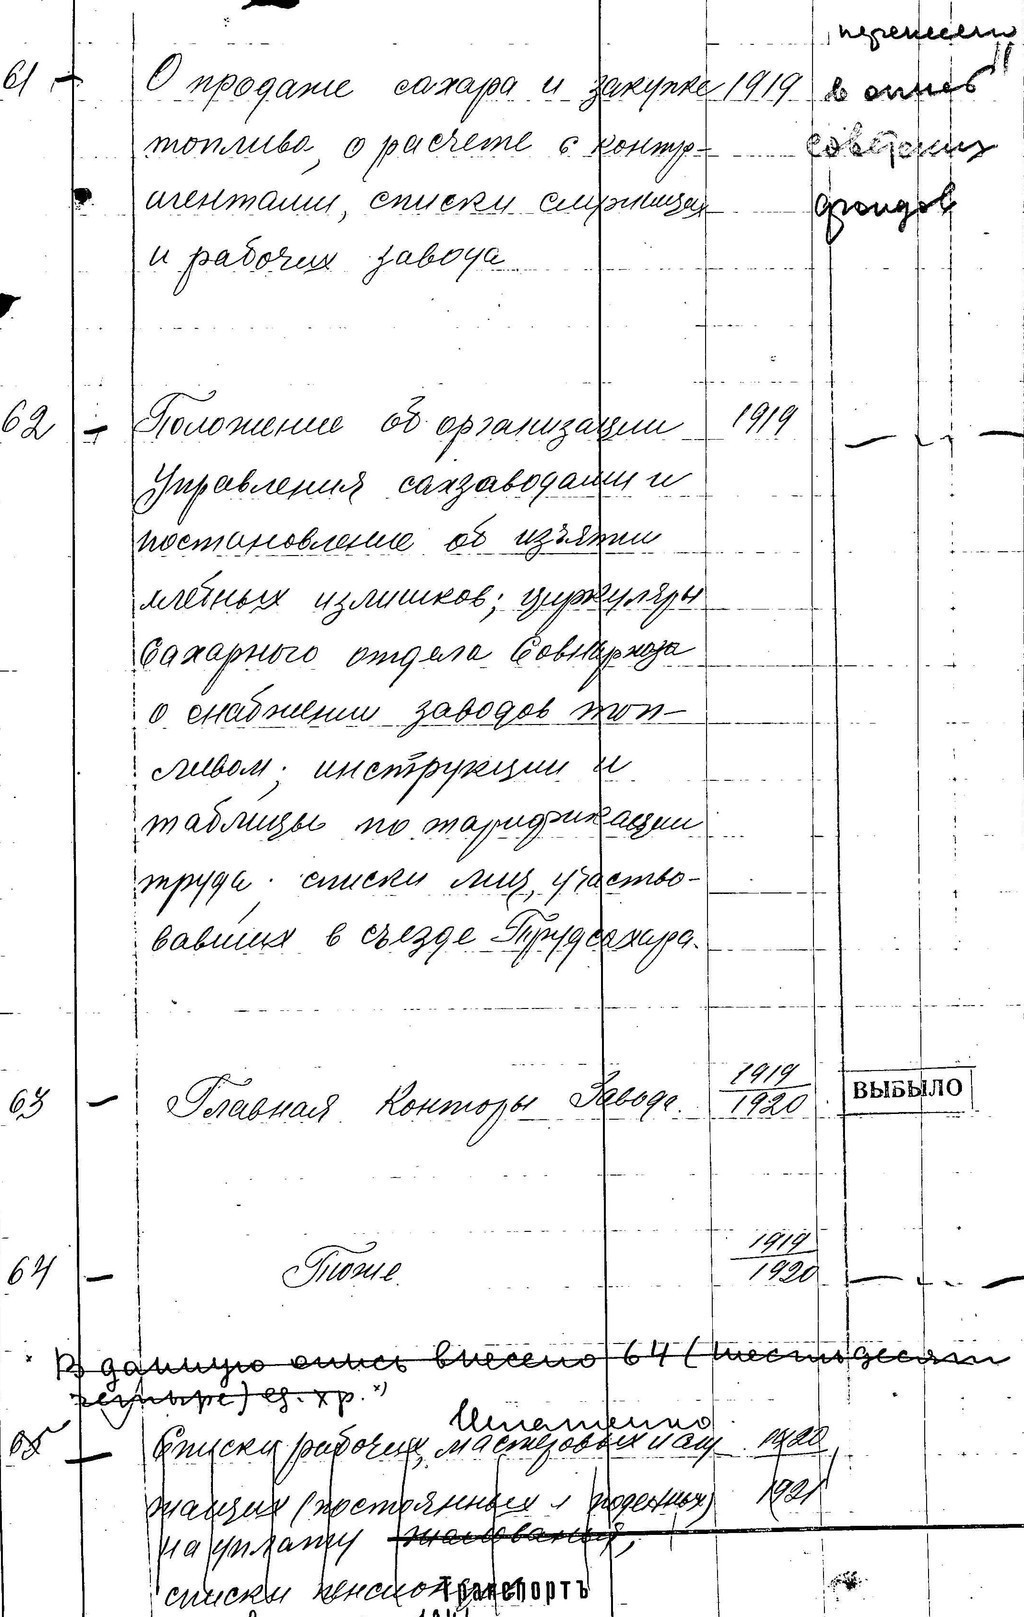 перенесено
61 - О продаже сахара и закупке 1919 в опись
топлива, о расчете с контр- советских
агентами, списки служащих фондов
и рабочих завода
62 - Положение об организации 1919
Управления сахзаводами и
постановление об изъятии
хлебных излишков; циркуляры
Сахарного отдела Совнархоза
о снабжении заводов топ-
ливом; инструкции и
таблицы по тарификации
труда. списки лиц, участво-
вавших в съезде Трудсахара.
63 - Главная Конторы Завода. 1919/1920 ВЫБЫЛО
64 - Тоже. 1919/1920
В данную опись внесено 64 (шестьдесят
четыре) ед. хр.
65 - Списки рабочих, мастеровых и слу 1920
жащих (постоянных и поденных) 1921
на уплату жалованья,
списки
Транспортъ